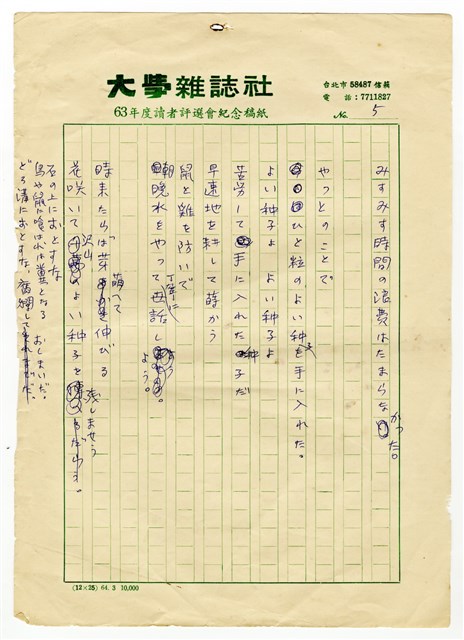 大學雜誌社
63年度讀者評選會紀念稿紙
台北市 58487 信箱
電話：7711827
No. 5
みすみす時間の浪費はたまらなかった。
やっとのことで
ひと粒のよい種を手に入れた。
よい種子よ よい種子よ
苦労して手に入れた種子だ
早速地を耕して蒔かう
鼠と雞を防いで
朝晩水をやって丁寧に世話しよう。
時来たらば芽萌へて伸びる
花咲いて沢山のよい種子を残しませう
石の上におとすな
鳥や鼠に喰はれば糞となる おしまいだ。
どろ溝におとすな、腐爛して
(12×25) 64. 3 10,000